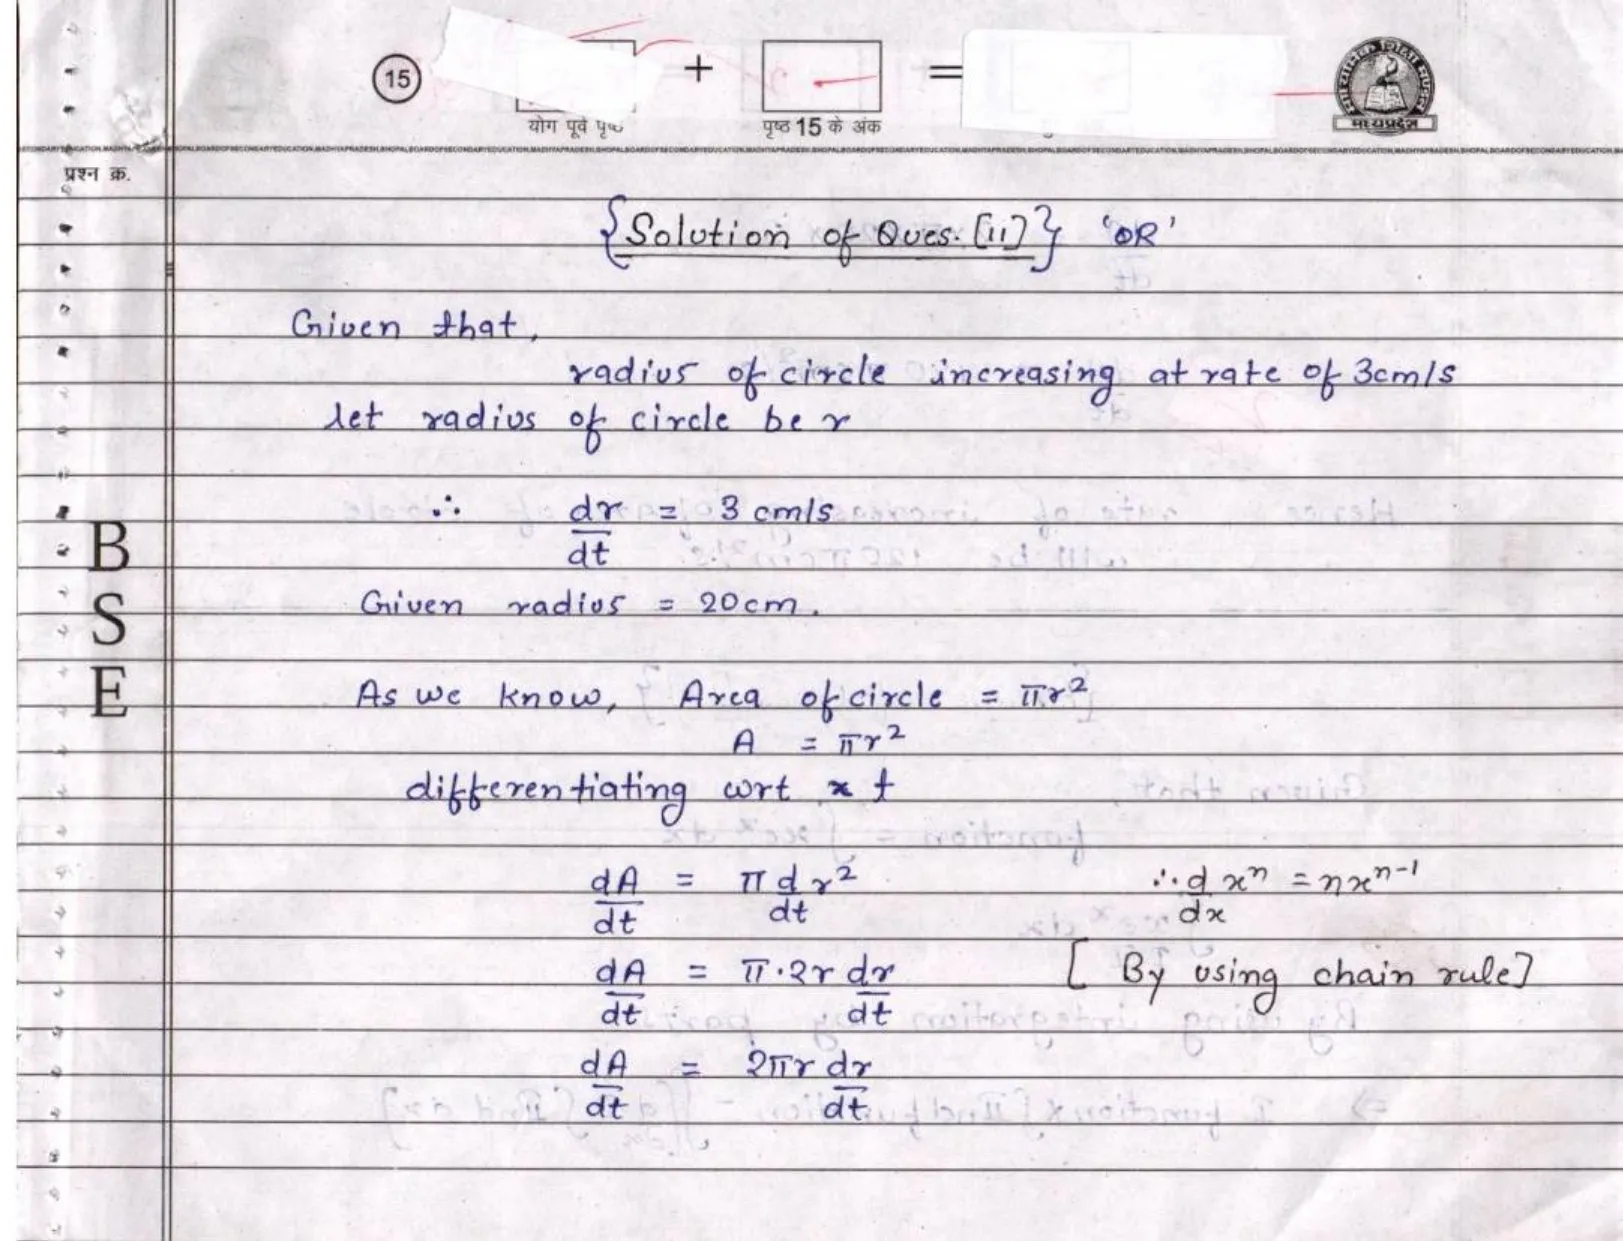 15
+
=
योग पूर्व पृष्ठ
पृष्ठ 15 के अंक
मध्यप्रदेश
प्रश्न क्र.
{Solution of Ques. [11]} 'OR'
Given that,
radius of circle increasing at rate of 3cm/s
let radius of circle be r
∴ dr/dt = 3 cm/s
Given radius = 20cm.
As we know, Area of circle = πr²
A = πr²
differentiating wrt t
dA/dt = π d/dt r² ∴ d/dx xⁿ = nxⁿ⁻¹
dA/dt = π·2r dr/dt [By using chain rule]
dA/dt = 2πr dr/dt
B
S
E